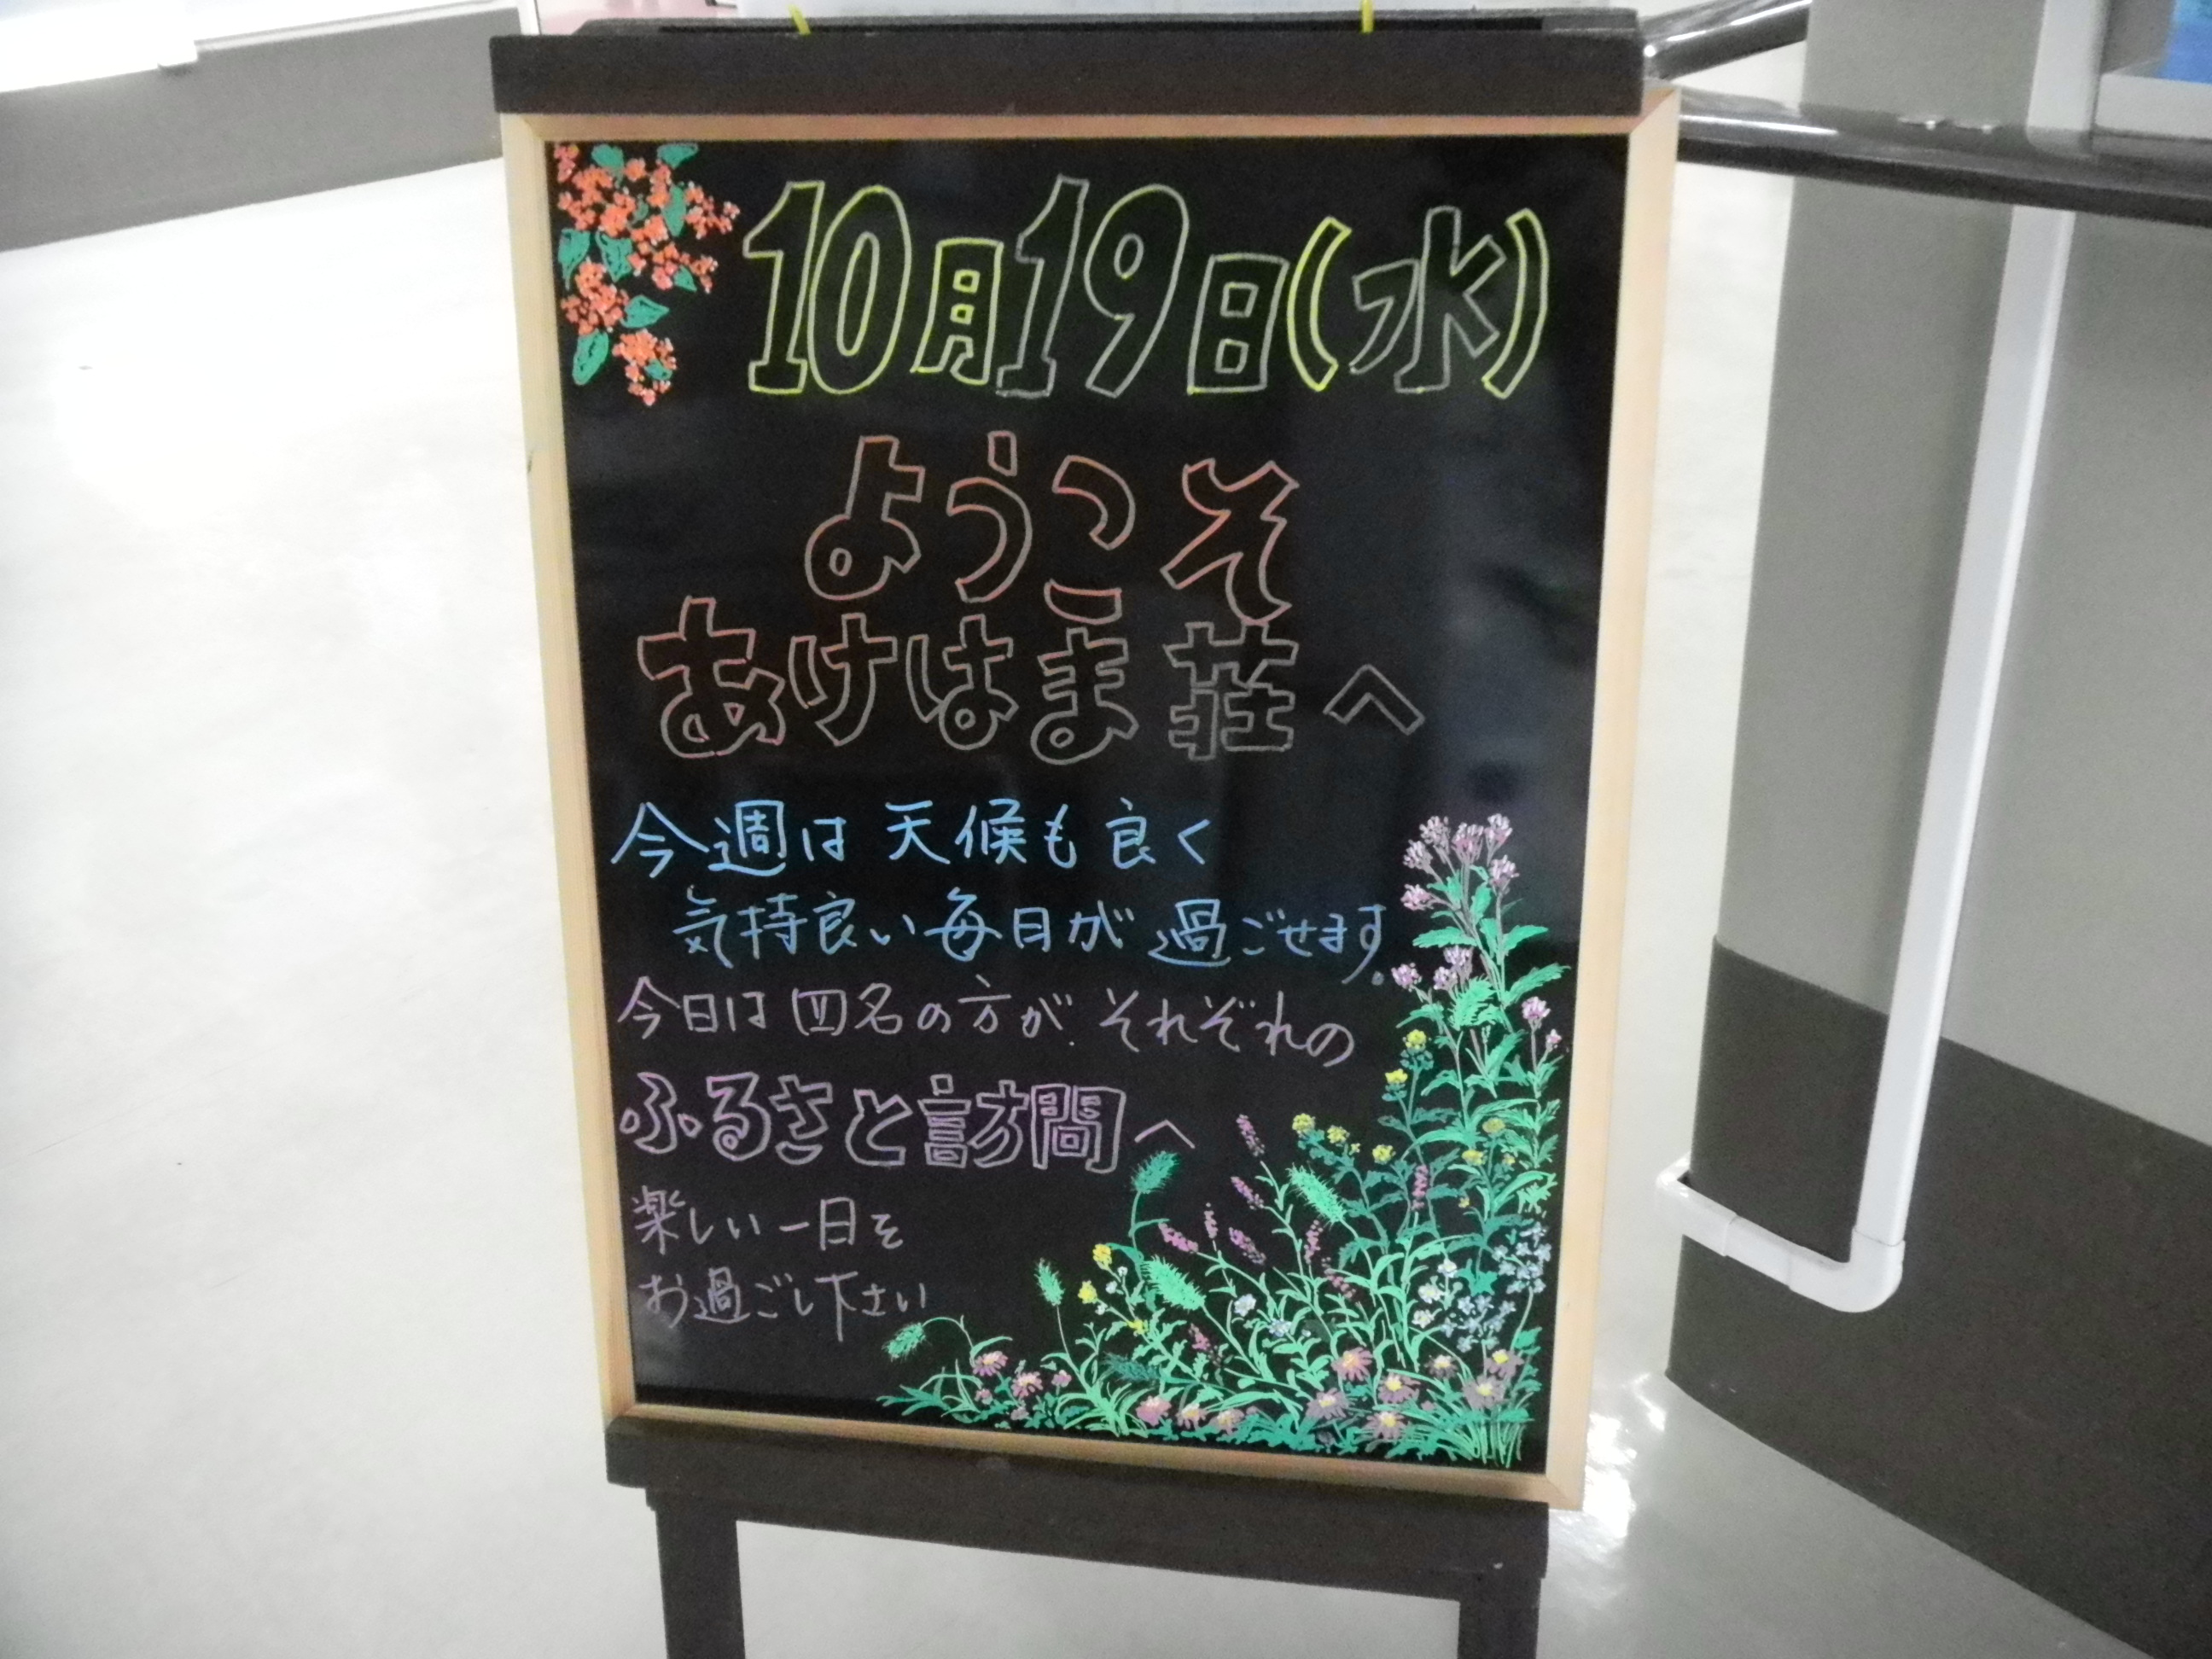 10月19日(水)
ようこそ
あけはま荘へ
今週は天候も良く
気持良い毎日が過ごせます。
今日は四名の方が、それぞれの
ふるさと訪問へ
楽しい一日を
お過ごし下さい